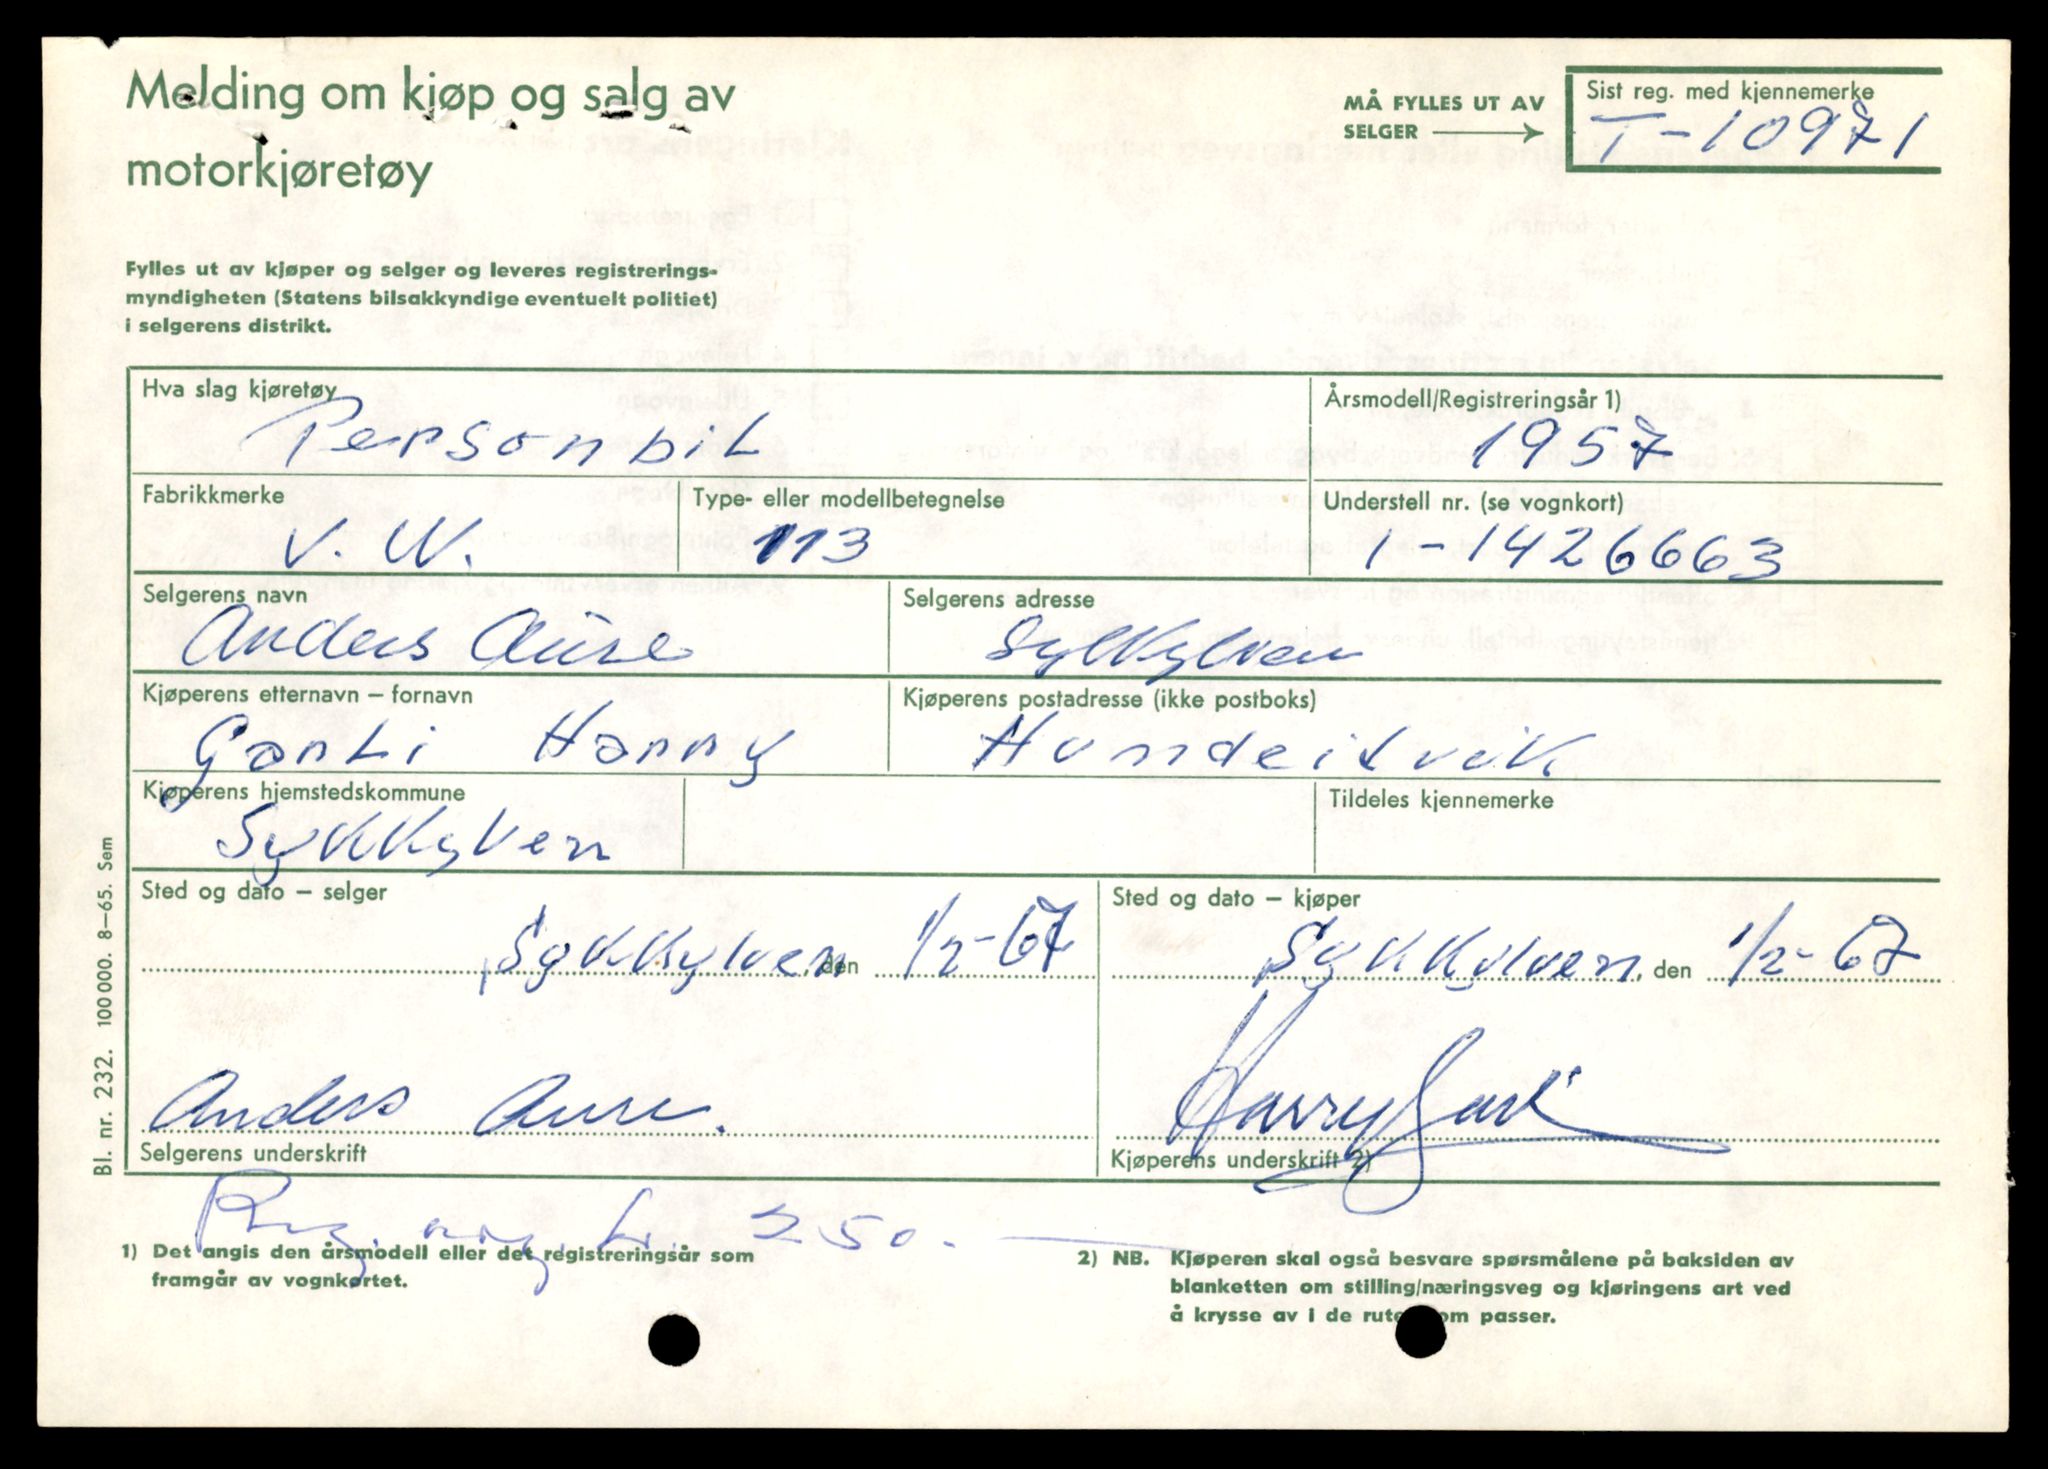 Melding om kjøp og salg av
motorkjøretøy
MÅ FYLLES UT AV
SELGER
Sist reg. med kjennemerke
T-10971
Fylles ut av kjøper og selger og leveres registrerings-
myndigheten (Statens bilsakkyndige eventuelt politiet)
i selgerens distrikt.
Hva slag kjøretøy
Personbil
Årsmodell/Registreringsår 1)
1957
Fabrikkmerke
V. W.
Type- eller modellbetegnelse
113
Understell nr. (se vognkort)
1-1426663
Selgerens navn
Anders Aure
Selgerens adresse
Sykkylven
Kjøperens etternavn – fornavn
Harry
Kjøperens postadresse (ikke postboks)
Hundeidvik
Kjøperens hjemstedskommune
Sykkylven
Tildeles kjennemerke
Sted og dato – selger
Sykkylven, den 1/2-67
Sted og dato – kjøper
Sykkylven, den 1/2-67
Anders Aure.
Selgerens underskrift
Harry
Kjøperens underskrift 2)
250.-
1) Det angis den årsmodell eller det registreringsår som
framgår av vognkortet.
2) NB. Kjøperen skal også besvare spørsmålene på baksiden av
blanketten om stilling/næringsveg og kjøringens art ved
å krysse av i de ruter som passer.
Bl. nr. 232. 100 000. 8–65. Sem